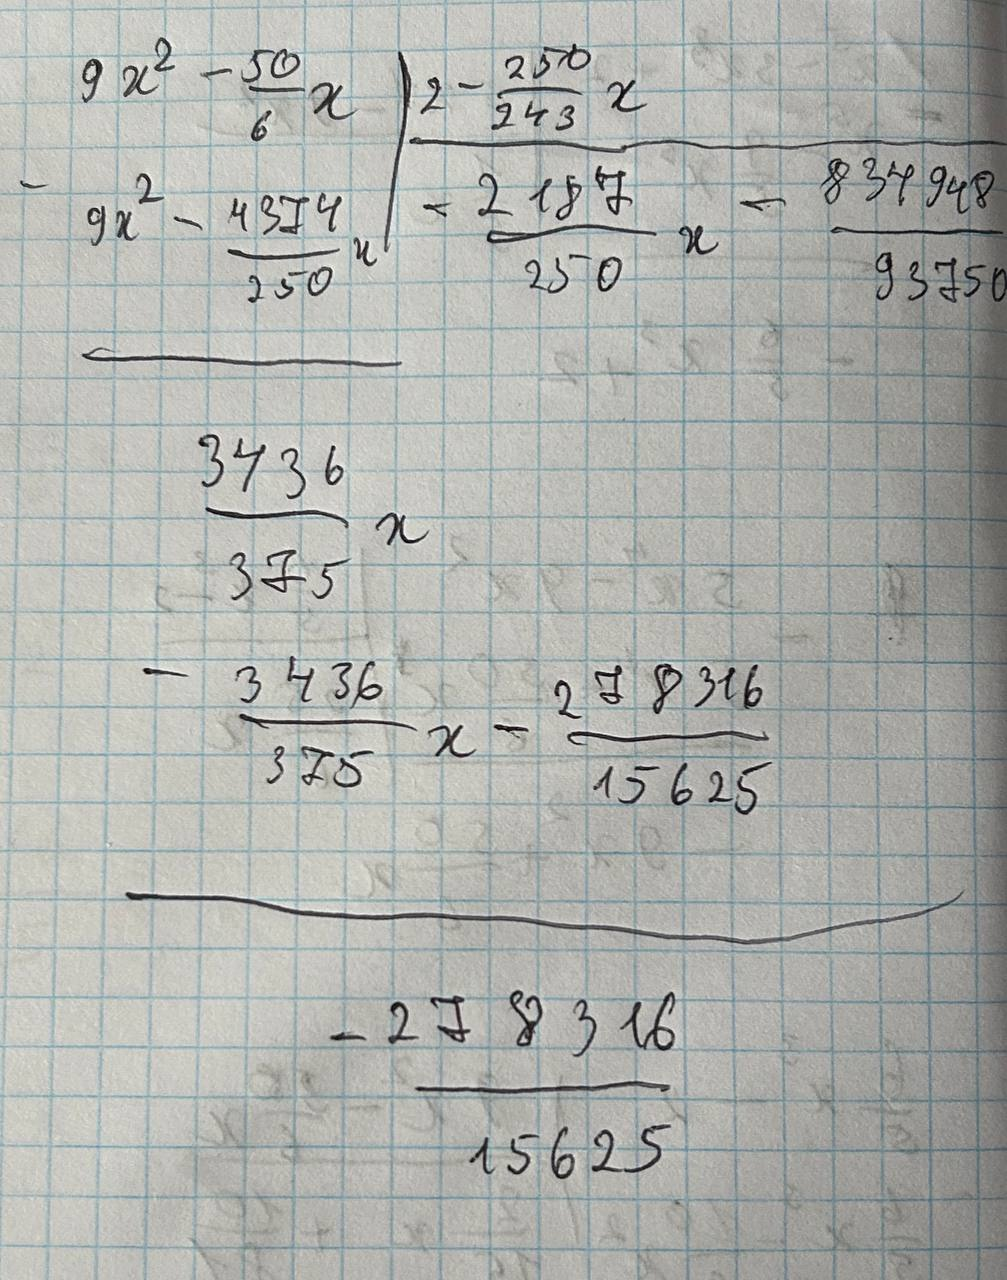 9x² - 50/6 x | 2 - 250/243 x
- 9x² - 4374/250 x | - 2187/250 x - 834948/93750
3436/375 x
- 3436/375 x - 278316/15625
- 278316/15625